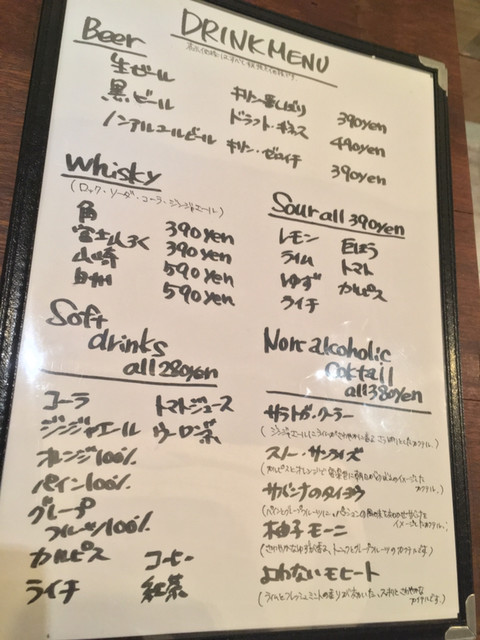 DRINK MENU
Beer
生ビール キリン一番しぼり 390yen
黒ビール ドラフト・ギネス 490yen
ノンアルコールビール キリン・ゼロイチ 390yen
Whisky
(ロック・ソーダ・コーラ・ジンジャエール)
角 390yen
富士山ろく 390yen
山崎 590yen
白州 590yen
Sour all 390yen
レモン 巨ほう
ライム トマト
ゆず カルピス
ライチ
Soft
drinks
all 280yen
コーラ トマトジュース
ジンジャエール ウーロン茶
オレンジ100%
パイン100%
グレープ
フルーツ100%
カルピス コーヒー
ライチ 紅茶
Non alcoholic
Coktail
all 380yen
サラトガ・クーラー
スノー・サンライズ
サバンナのタイヨウ
柚子モーニ
よわないモヒート